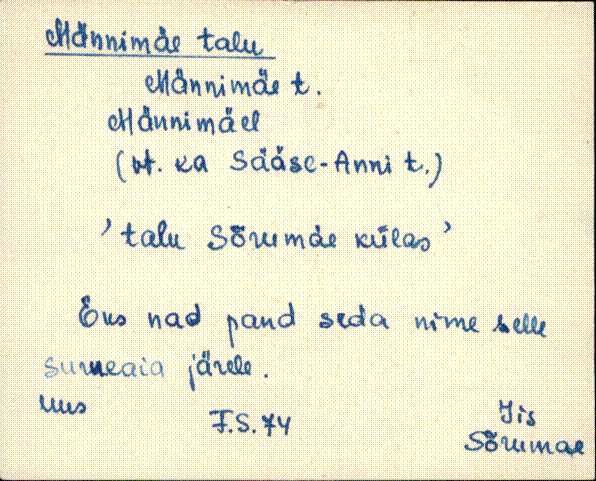 Männimäe talu
Männimäe t.
Männimäel
(vt. ka Sääse-Anni t.)
'talu Sõrumäe külas'
Eks nad pand seda nime selle
surneaia järele.
uus
F.S. 74
Jis
Sõrumäe